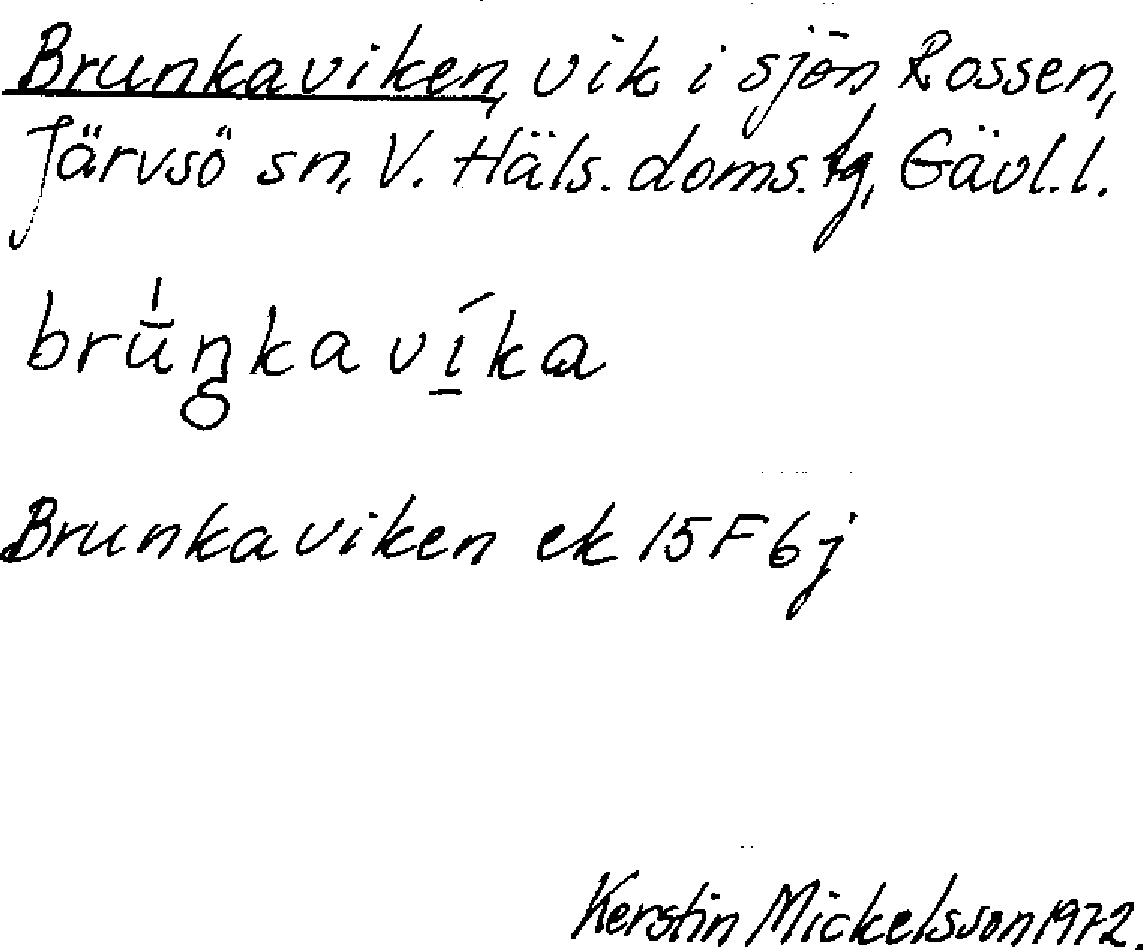 Brunkaviken, vik i sjön Rossen,
Järvsö sn, V. Häls. doms. tg, Gävl. l.
brŋ̄̍kavíka
Brunkaviken ek 15F 6j
Kerstin Mickelsson 1972.